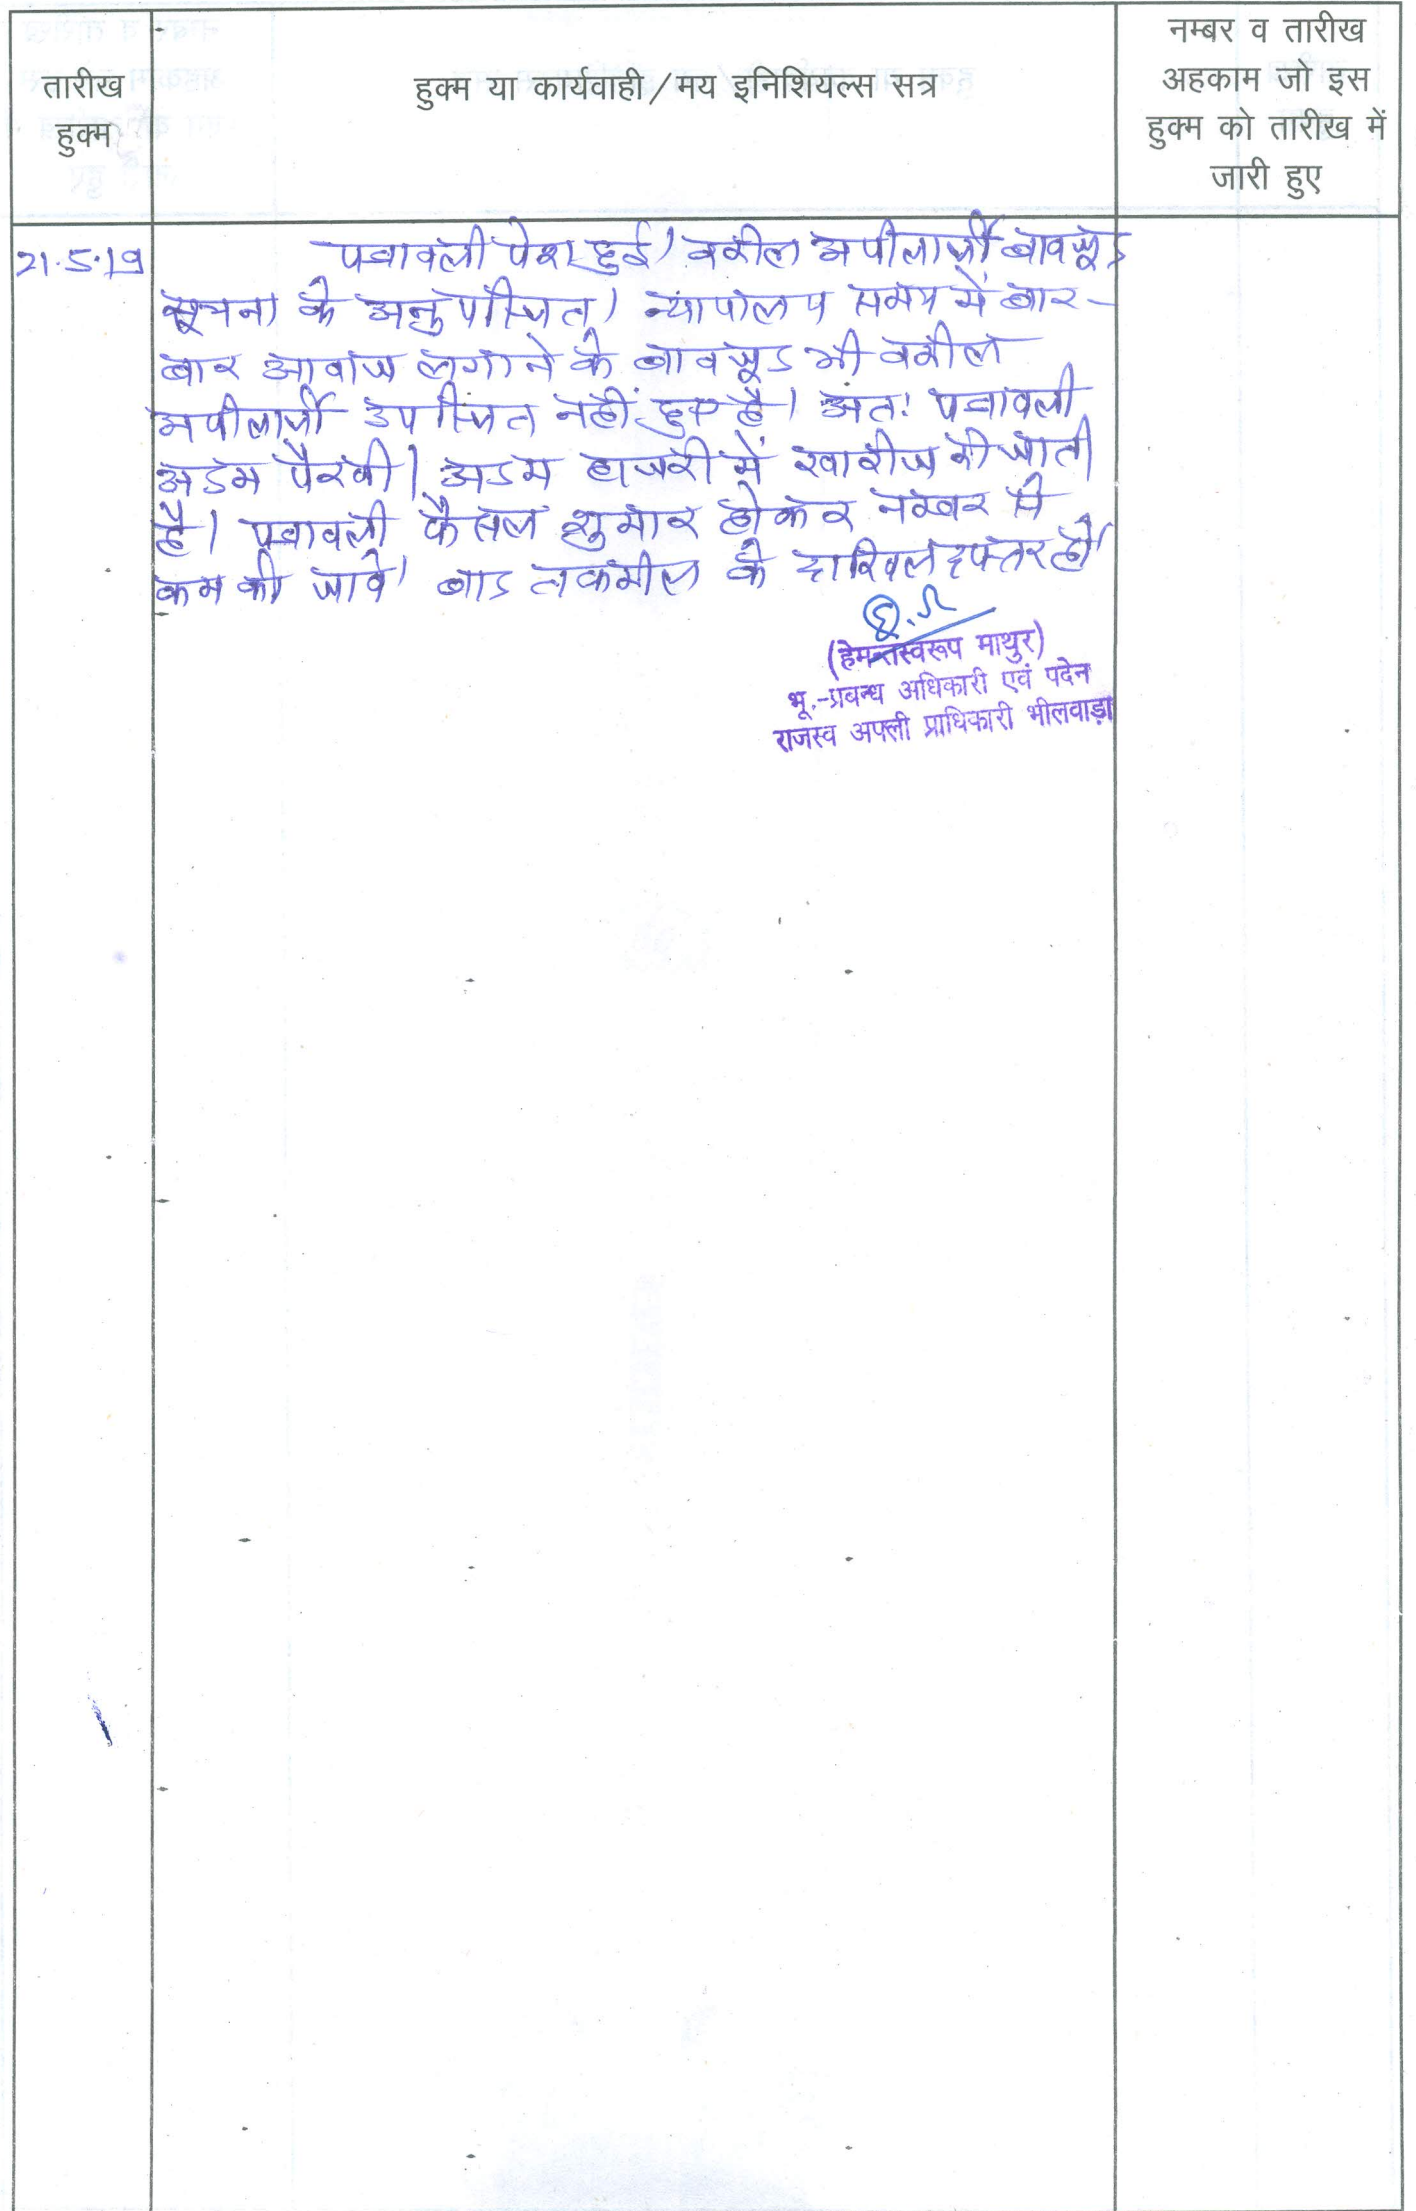 तारीख
हुक्म
हुक्म या कार्यवाही/मय इनिशियल्स सत्र
नम्बर व तारीख
अहकाम जो इस
हुक्म को तारीख में
जारी हुए
21.5.19
पत्रावली पेश हुई। वकील अपीलार्थी बावजूद
सूचना के अनुपस्थित। न्यायालय समय में बार-
बार आवाज लगाने के बावजूद भी वकील
अपीलार्थी उपस्थित नहीं हुए है। अतः पत्रावली
अदम पैरवी। अदम हाजरी में खारीज की जाती
है। पत्रावली फैसल शुमार होकर नम्बर से
कम की जावे। बाद तकमील के दाखिल दफ्तर हो
(हेमन्तस्वरूप माथुर)
भू.-प्रबन्ध अधिकारी एवं पदेन
राजस्व अपली प्राधिकारी भीलवाड़ा